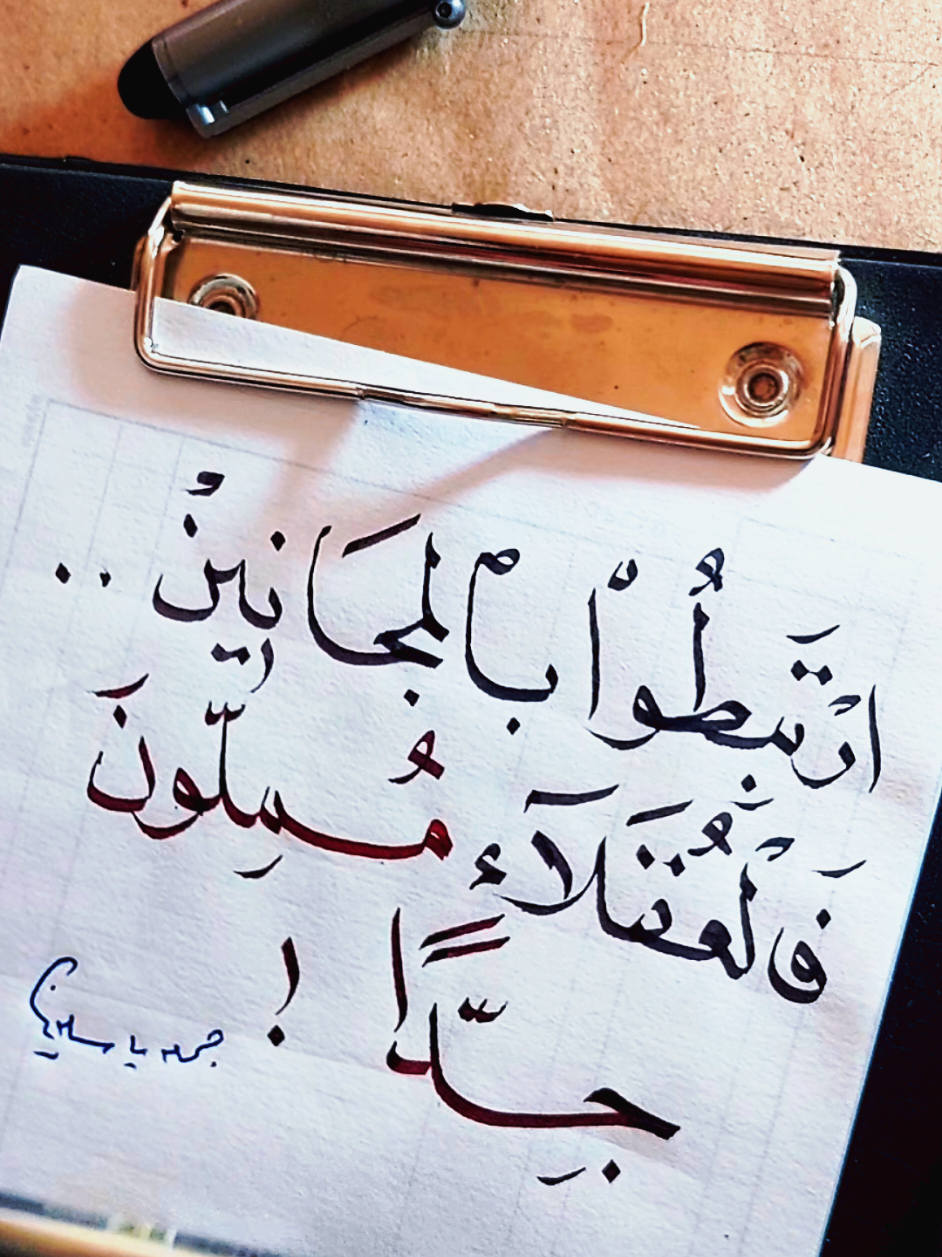 ارْتَبِطُواْ بالمجَانِينْ ..
فَلْعُقَلَآء مُمِلّونَ
جِدًّا !
ياسين